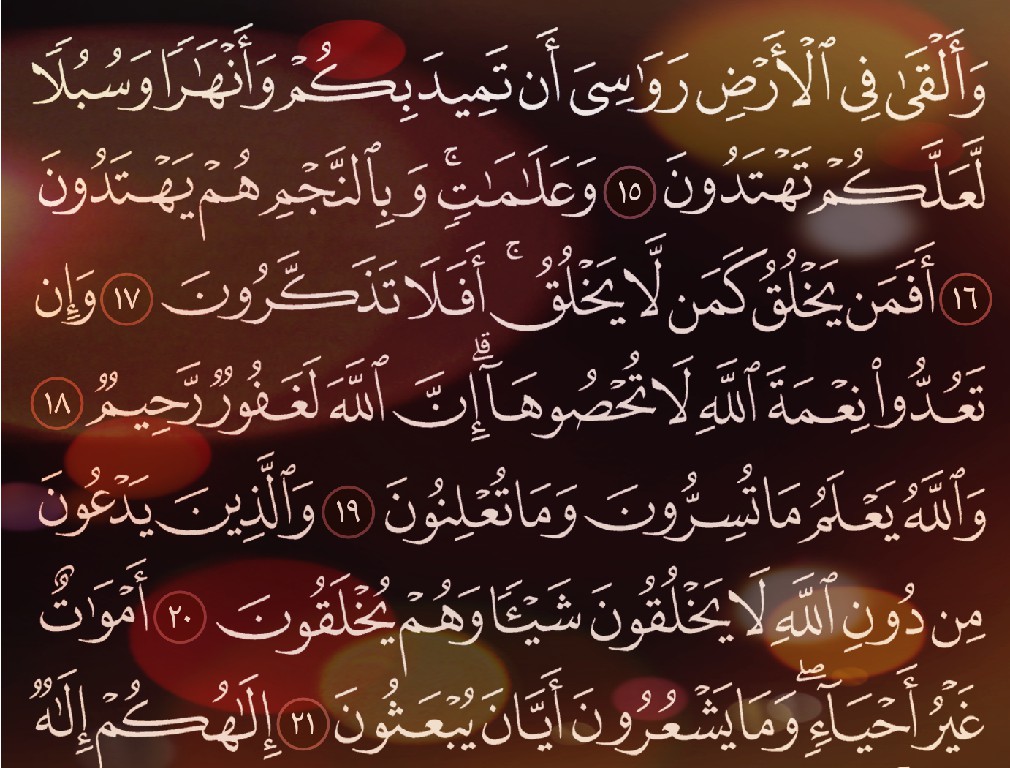 وَأَلْقَىٰ فِى ٱلْأَرْضِ رَوَٰسِىَ أَن تَمِيدَ بِكُمْ وَأَنْهَـٰرًا وَسُبُلًا
لَّعَلَّكُمْ تَهْتَدُونَ ١٥ وَعَلَـٰمَـٰتٍ ۚ وَبِٱلنَّجْمِ هُمْ يَهْتَدُونَ
١٦ أَفَمَن يَخْلُقُ كَمَن لَّا يَخْلُقُ ۚ أَفَلَا تَذَكَّرُونَ ١٧ وَإِن
تَعُدُّوا۟ نِعْمَةَ ٱللَّهِ لَا تُحْصُوهَآ ۗ إِنَّ ٱللَّهَ لَغَفُورٌ رَّحِيمٌ ١٨
وَٱللَّهُ يَعْلَمُ مَا تُسِرُّونَ وَمَا تُعْلِنُونَ ١٩ وَٱلَّذِينَ يَدْعُونَ
مِن دُونِ ٱللَّهِ لَا يَخْلُقُونَ شَيْـًٔا وَهُمْ يُخْلَقُونَ ٢٠ أَمْوَٰتٌ
غَيْرُ أَحْيَآءٍ ۖ وَمَا يَشْعُرُونَ أَيَّانَ يُبْعَثُونَ ٢١ إِلَـٰهُكُمْ إِلَـٰهٌ